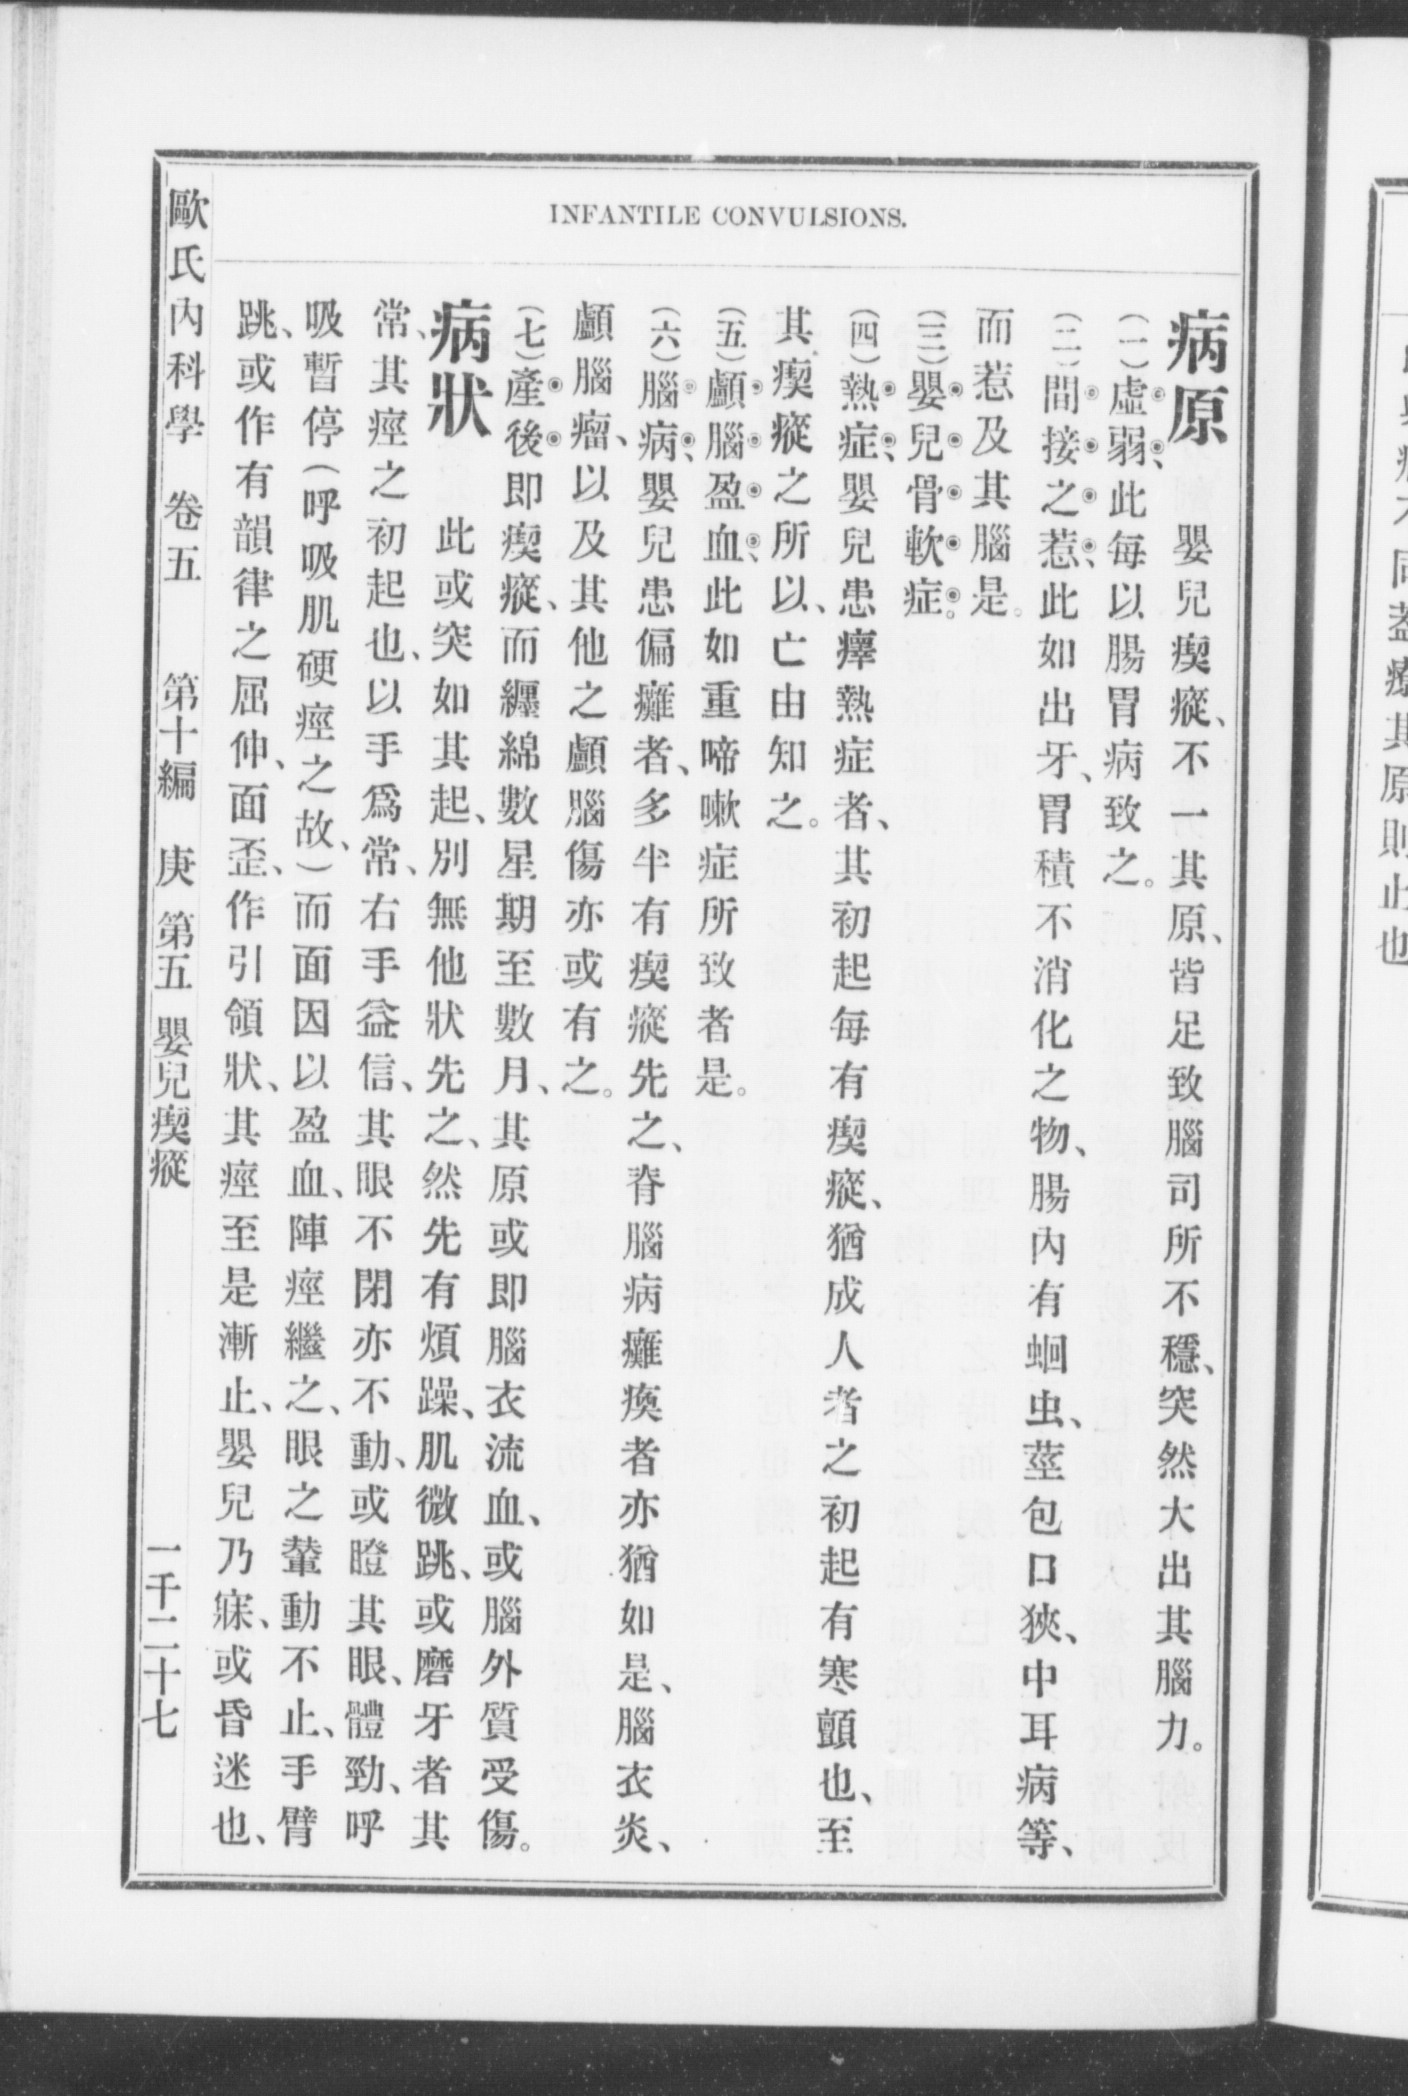 INFANTILE CONVULSIONS.
病原　嬰兒瘈瘲、不一其原、皆足致腦司所不穩、突然大出其腦力。
(一)虛弱、此每以腸胃病致之。
(二)間接之惹、此如出牙、胃積不消化之物、腸內有蛔虫、莖包口狹、中耳病等、
而惹及其腦是。
(三)嬰兒骨軟症。
(四)熱症、嬰兒患癉熱症者、其初起每有瘈瘲、猶成人者之初起有寒顫也、至
其瘈瘲之所以、亡由知之。
(五)顱腦盈血、此如重啼嗽症所致者是。
(六)腦病、嬰兒患偏癱者、多半有瘈瘲先之、脊腦病癱瘓者亦猶如是、腦衣炎、
顱腦瘤、以及其他之顱腦傷亦或有之。
(七)產後即瘈瘲、而纏綿數星期至數月、其原或即腦衣流血、或腦外質受傷。
病狀　此或突如其起、別無他狀先之、然先有煩躁、肌微跳、或磨牙者其
常、其痙之初起也、以手爲常、右手益信、其眼不閉亦不動、或瞪其眼、體勁、呼
吸暫停(呼吸肌硬痙之故、)而面因以盈血、陣痙繼之、眼之輦動不止、手臂
跳、或作有韻律之屈伸、面歪、作引領狀、其痙至是漸止、嬰兒乃寐、或昏迷也、
歐氏內科學　卷五　第十編　庚　第五　嬰兒瘈瘲　一千二十七
病不同蓋療其原則止也